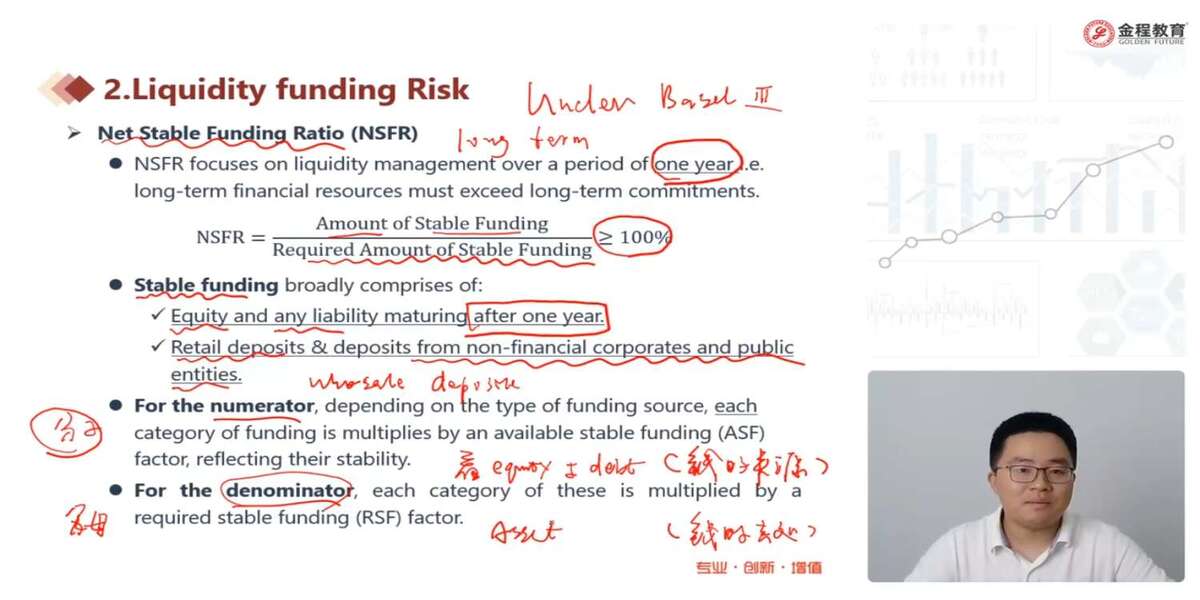 金程教育
GOLDEN FUTURE
2.Liquidity funding Risk
Under Basel III
Net Stable Funding Ratio (NSFR)
long term
NSFR focuses on liquidity management over a period of one year i.e.
long-term financial resources must exceed long-term commitments.
NSFR = Amount of Stable Funding / Required Amount of Stable Funding ≥ 100%
Stable funding broadly comprises of:
Equity and any liability maturing after one year.
Retail deposits & deposits from non-financial corporates and public
entities.
wholesale deposite
For the numerator, depending on the type of funding source, each
分子
category of funding is multiplies by an available stable funding (ASF)
factor, reflecting their stability.
看 equity 与 debt (钱的来源)
For the denominator, each category of these is multiplied by a
分母
required stable funding (RSF) factor.
Asset (钱的去处)
专业·创新·增值